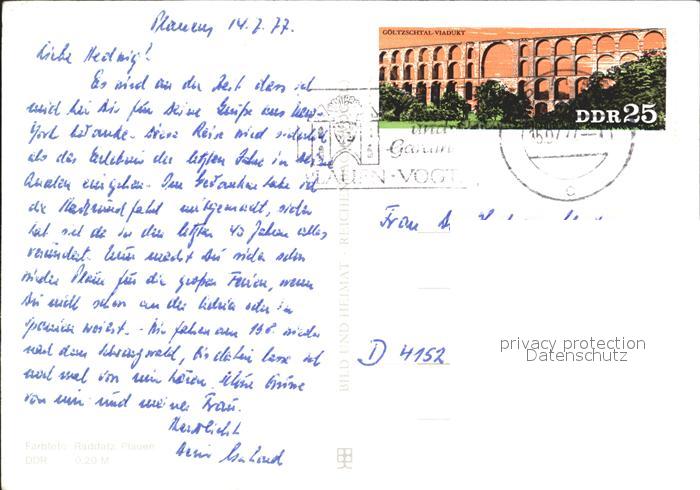 Plauen, 14.7.77.
Liebe Hedwig!
Es wird an der Zeit dass ich
mich bei Dir für Deine Grüße aus New-
York bedanke. Diese Reise wird sicher
als das Erlebnis der letzten Jahre in Deine
Annalen eingehen. In Gedanken habe ich
die mitgemacht, sicher
hat sich da in den letzten 40 Jahren alles
verändert. Nun macht Du sicher schon
wieder Pläne für die großen Ferien, wenn
Du nicht schon an der Adria oder in
Spanien weilst. - Wir fahren am 1.8. wieder
nach dem, bis dahin lasse ich
noch mal von mir hören. Grüße
von mir und meiner Frau.
Herzlichst
Dein Gerhard
Farbfoto: Raddatz, Plauen
DDR 0,20 M
BILD UND HEIMAT · REICHENBACH
GÖLTZSCHTAL-VIADUKT
DDR 25
und
PLAUEN · VOGT
Frau
D 4152
privacy protection
Datenschutz